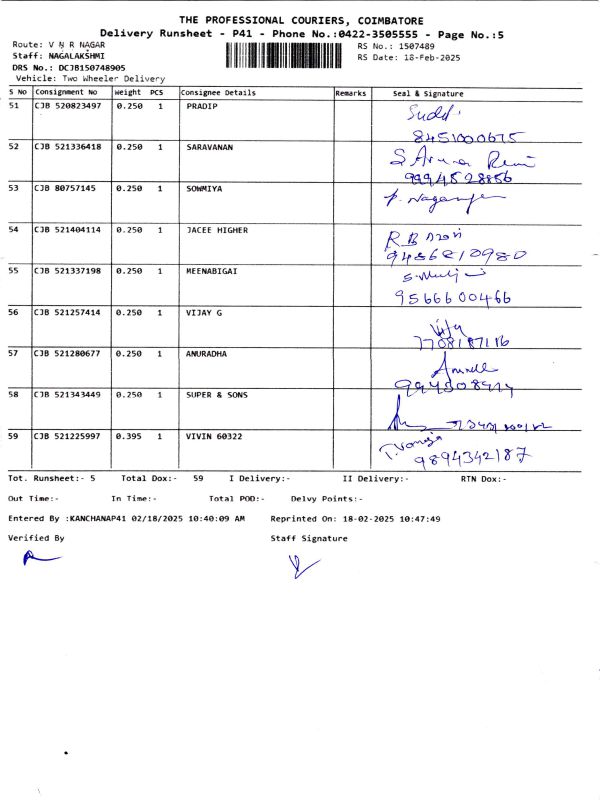 THE PROFESSIONAL COURIERS, COIMBATORE
Delivery Runsheet - P41 - Phone No.:0422-3505555 - Page No.:5
Route: V N R NAGAR
RS No.: 1507489
Staff: NAGALAKSHMI
RS Date: 18-Feb-2025
DRS No.: DCJB150748905
Vehicle: Two Wheeler Delivery
S No Consignment No Weight PCS Consignee Details Remarks Seal & Signature
51 CJB 520823497 0.250 1 PRADIP
8451000675
52 CJB 521336418 0.250 1 SARAVANAN
S Aruna
9994528856
53 CJB 80757145 0.250 1 SOWMIYA
54 CJB 521404114 0.250 1 JACEE HIGHER
R.B
9486210980
55 CJB 521337198 0.250 1 MEENABIGAI
9566600466
56 CJB 521257414 0.250 1 VIJAY G
Vijay
7708187116
57 CJB 521280677 0.250 1 ANURADHA
58 CJB 521343449 0.250 1 SUPER & SONS
59 CJB 521225997 0.395 1 VIVIN 60322
9894342187
Tot. Runsheet:- 5 Total Dox:- 59 I Delivery:- II Delivery:- RTN Dox:-
Out Time:- In Time:- Total POD:- Delvy Points:-
Entered By :KANCHANAP41 02/18/2025 10:40:09 AM Reprinted On: 18-02-2025 10:47:49
Verified By Staff Signature